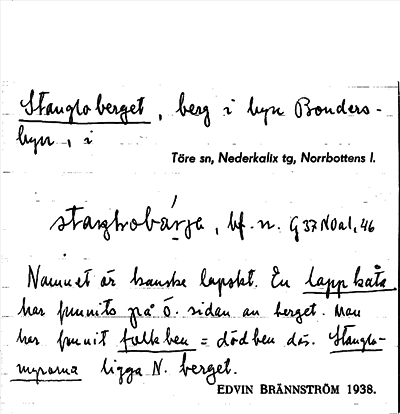 Stangloberget, berg i byn Bonders-
byn, i
Töre sn, Nederkalix tg, Norrbottens l.
bf. n. G37NOa1,46
Namnet är kanske lapskt. En lappkåta
har funnits på Ö. sidan av berget. Man
har funnit folkben = dödben där. Stanglo-
myrarna ligga N. berget.
EDVIN BRÄNNSTRÖM 1938.